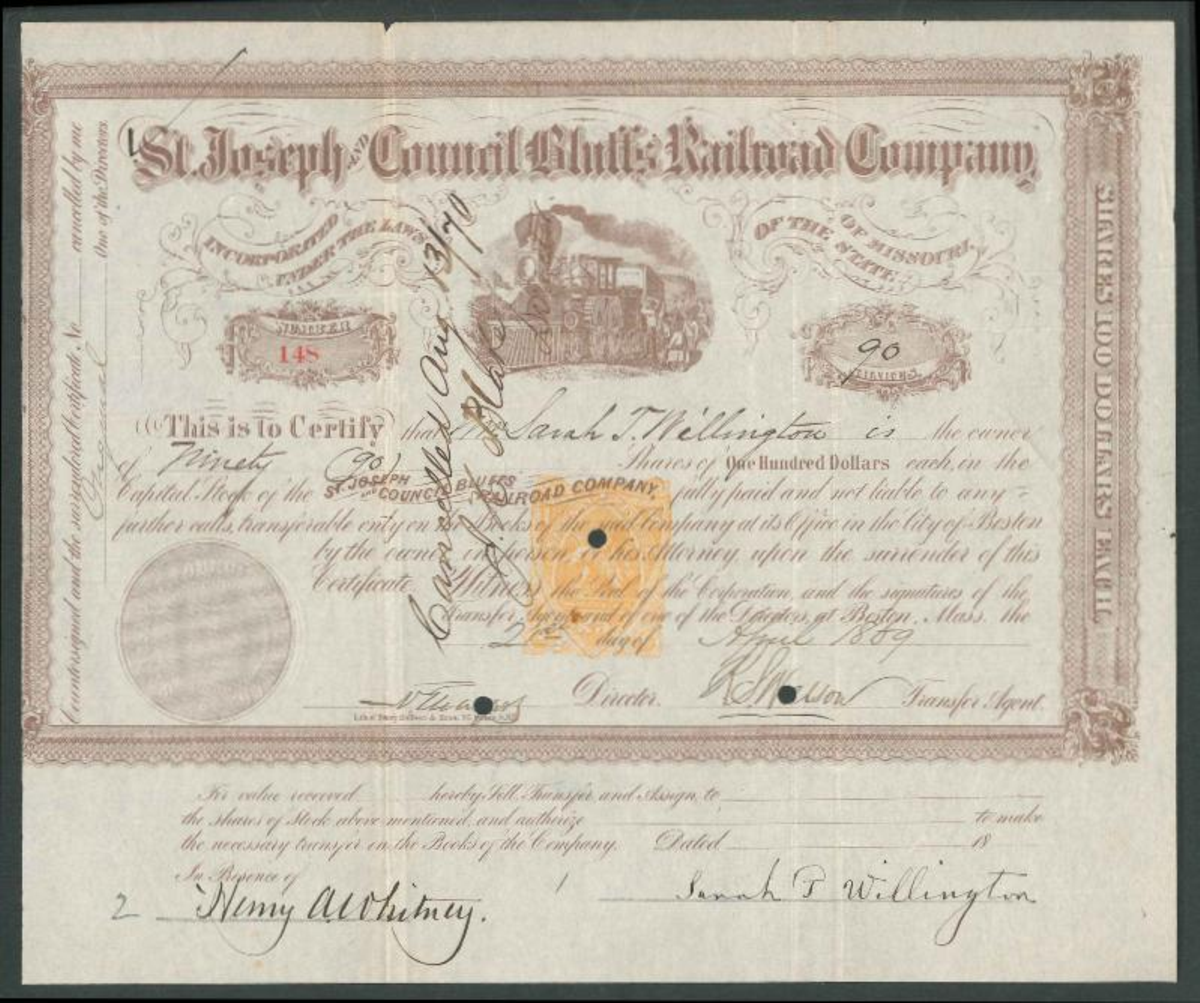 St. Joseph AND Council Bluffs Railroad Company,
INCORPORATED UNDER THE LAWS
OF THE STATE OF MISSOURI.
NUMBER
148
90
SHARES 100 DOLLARS EACH
Countersigned and the surrendered Certificate No. cancelled by me
One of the Directors.
Cancelled Aug 13/70
This is to Certify that Sarah T. Willington is the owner
of Ninety (90) Shares of One Hundred Dollars each, in the
Capital Stock of the ST. JOSEPH AND COUNCIL BLUFFS RAILROAD COMPANY, fully paid and not liable to any
further calls, transferable only on the Books of the said Company at its Office in the City of Boston
by the owner in person or his Attorney, upon the surrender of this
Certificate. Witness the Seal of the Corporation, and the signatures of the
Transfer Agent and of one of the Directors, at Boston, Mass. the
day of April 1869
Director. Transfer Agent.
For value received hereby Sell, Transfer, and Assign, to
the shares of Stock above mentioned, and authorize to make
the necessary transfer on the Books of the Company. Dated 18
In Presence of
2 Henry A Whitney. 1 Sarah T Willington